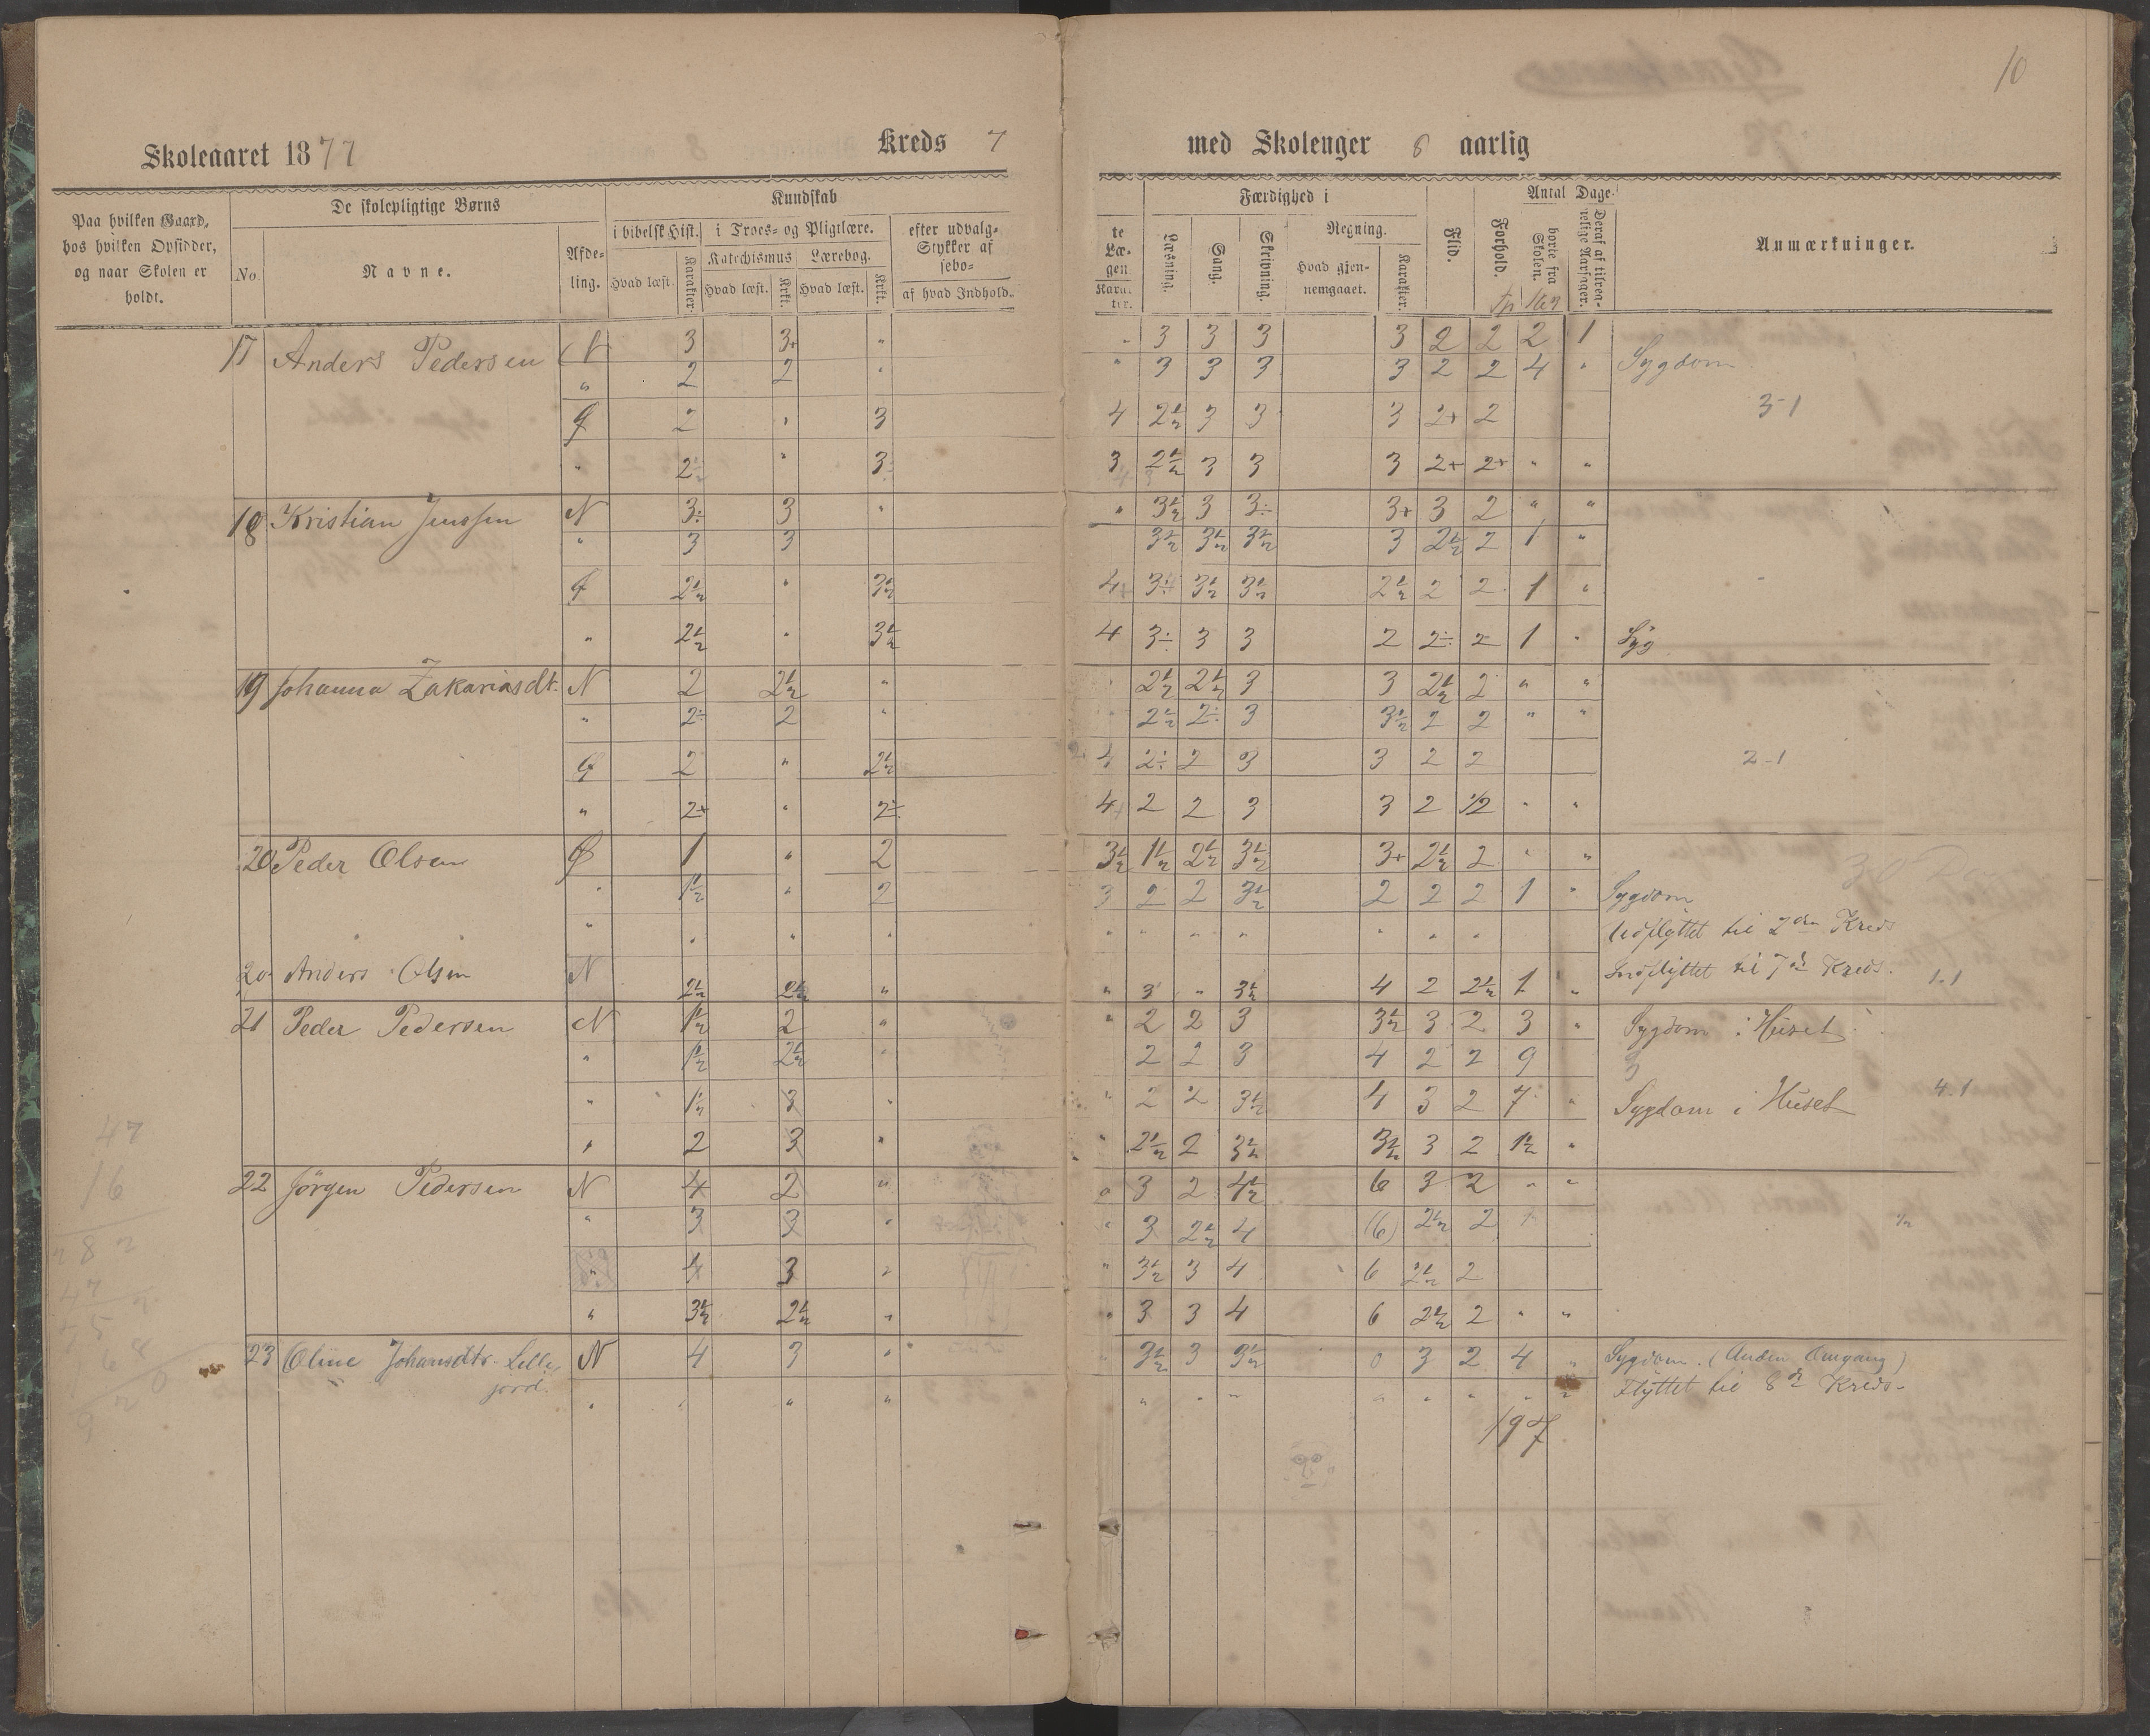 10
Skoleaaret 1877 Kreds 7 med Skolenger 8 aarlig
Paa hvilken Gaard, hos hvilken Opsidder, og naar Skolen er holdt.
De skolepligtige Børns
No. Navne. Afdeling.
Kundskab
i bibelsk Hist. i Troes- og Pligtlære. efter udvalg-
Stykker af
Katechismus Lærebog.
Hvad læst. Karakter. Hvad læst. Krkt. Hvad læst. Krkt. af hvad Indhold.
te Læ-
gen
Karakter.
Færdighed i
Læsning. Sang. Skrivning. Regning.
Hvad gjennemgaaet. Karakter.
Flid. Forhold.
Antal Dage.
borte fra Skolen.
Anmærkninger.
17 Anders Pedersen N 3 3+ " " 3 3 3 3 2 2 2 1
" 2 2 " " 3 3 3 3 2 2 4 " Sygdom
Ø 2 " 3 4 2½ 3 3 3 2+ 2 3-1
" 2÷ " 3 3 2½ 3 3 3 2+ 2+ " "
18 Kristian Jenssen N 3÷ 3 " " 3½ 3 3÷ 3+ 3 2 " "
" 3 3 3½ 3½ 3½ 3 2½ 2 1 "
Ø 2½ " 3½ 4+ 3÷ 3½ 3½ 2½ 2 2 1 "
" 2½ " 3½ 4 3÷ 3 3 2 2÷ 2 1 " Syg
19 Johanna Zakariasdt. N 2 2½ " " 2½ 2½ 3 3 2½ 2 " "
" 2÷ 2 " " 2½ 2÷ 3 3½ 2 2 " "
Ø 2 " 2½ 4 2÷ 2 3 3 2 2 2-1
" 2+ " 2÷ 4 2 2 3 3 2 ½ " "
20 Peder Olsen Ø 1 " 2 3½ 1½ 2½ 3½ 3+ 2½ 2 " "
" 1½ " 2 3 2 2 3½ 2 2 2 1 " Sygdom
" " " " " " " " " " " Udflyttet til 2den Kreds
20 Anders Olsen N 2½ 2½ " " 3 " 3½ 4 2 2½ 1 " Indflyttet til 7de Kreds. 1-1
21 Peder Pedersen N 1½ 2 " " 2 2 3 3½ 3 2 3 " Sygdom i Huset
" 1½ 2½ " 2 2 3 4 2 2 9
" 1½ 3 " " 2 2 3½ 4 3 2 7 " Sygdom i Huset 4-1
" 2 3 " " 2½ 2 3½ 3½ 3 2 1½ "
22 Jörgen Pedersen N 4 2 " " 3 2 4½ 6 3 2 " "
" 3 3 " " 3 2½ 4 (6) 2½ 2
" 4 3 " " 3½ 3 4 6 2½ 2
" 3½ 2½ " " 3 3 4 6 2½ 2 " "
23 Oline Johansdtr. Lille- N 4 3 " " 3½ 3 3½ 0 3 2 4 " Sygdom. (Anden Omgang)
jord. " " " " " " " " " " " " Flyttet til 8de Kreds.
197
47
16